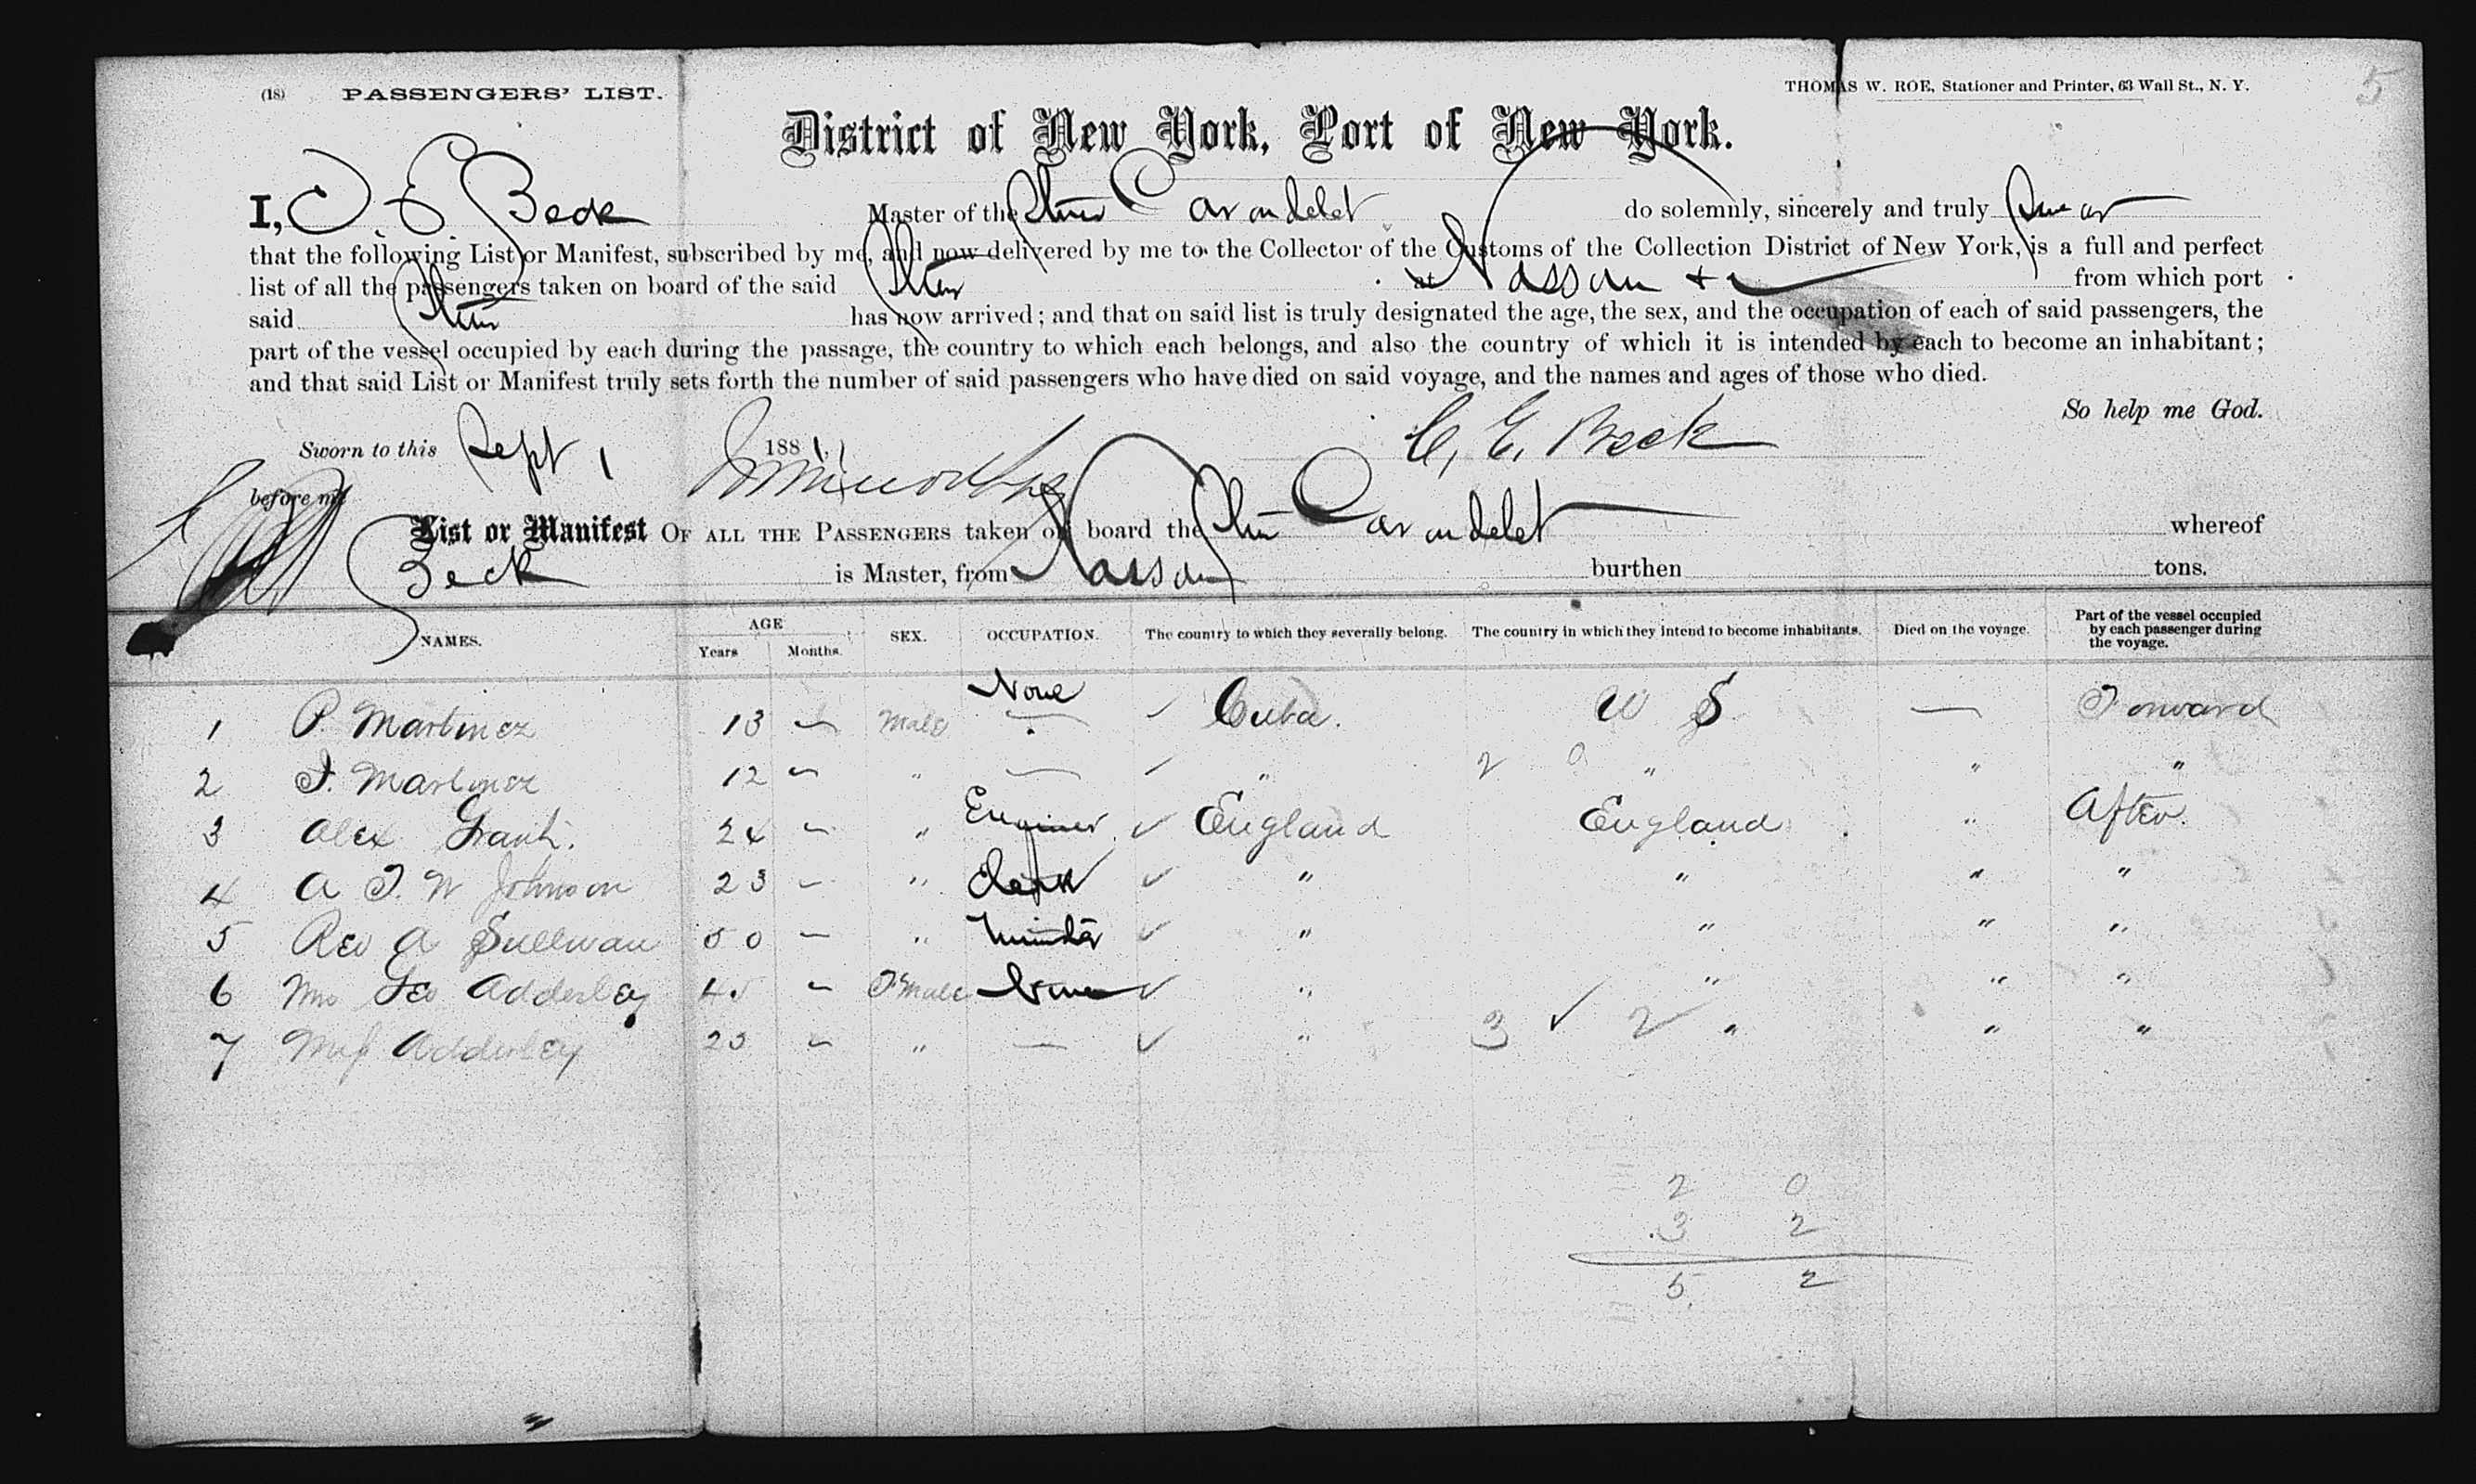 (18) PASSENGERS' LIST.
THOMAS W. ROE, Stationer and Printer, 63 Wall St., N. Y.
5
District of New York, Port of New York.
I, C. E. Beck Master of the Stmr Carondelet do solemnly, sincerely and truly swear
that the following List or Manifest, subscribed by me, and now delivered by me to the Collector of the Customs of the Collection District of New York, is a full and perfect
list of all the passengers taken on board of the said Stmr at Nassau + from which port
said Stmr has now arrived; and that on said list is truly designated the age, the sex, and the occupation of each of said passengers, the
part of the vessel occupied by each during the passage, the country to which each belongs, and also the country of which it is intended by each to become an inhabitant;
and that said List or Manifest truly sets forth the number of said passengers who have died on said voyage, and the names and ages of those who died.
So help me God.
Sworn to this Sept 1 1881 C. E. Beck
before me
List or Manifest OF ALL THE PASSENGERS taken on board the Stmr Carondelet whereof
Beck is Master, from Nassau burthen tons.
NAMES. AGE Years Months. SEX. OCCUPATION. The country to which they severally belong. The country in which they intend to become inhabitants. Died on the voyage. Part of the vessel occupied by each passenger during the voyage.
1 P. Martinez 13 — Male None — ✓ Cuba. U S — Forward
2 F. Martinez 12 — " — ✓ " 2 0 " " "
3 Alex Grant. 24 — " Engineer ✓ England England " After.
4 A F. W Johnson 23 — " Clerk ✓ " " " "
5 Rev A Sullivan 50 — " Minister ✓ " " " "
6 Mrs Geo Adderley 45 — Fmale None ✓ " " " "
7 Miss Adderley 23 — " — ✓ " 3 ✓ 2 " " "
2 0
3 2
5 2